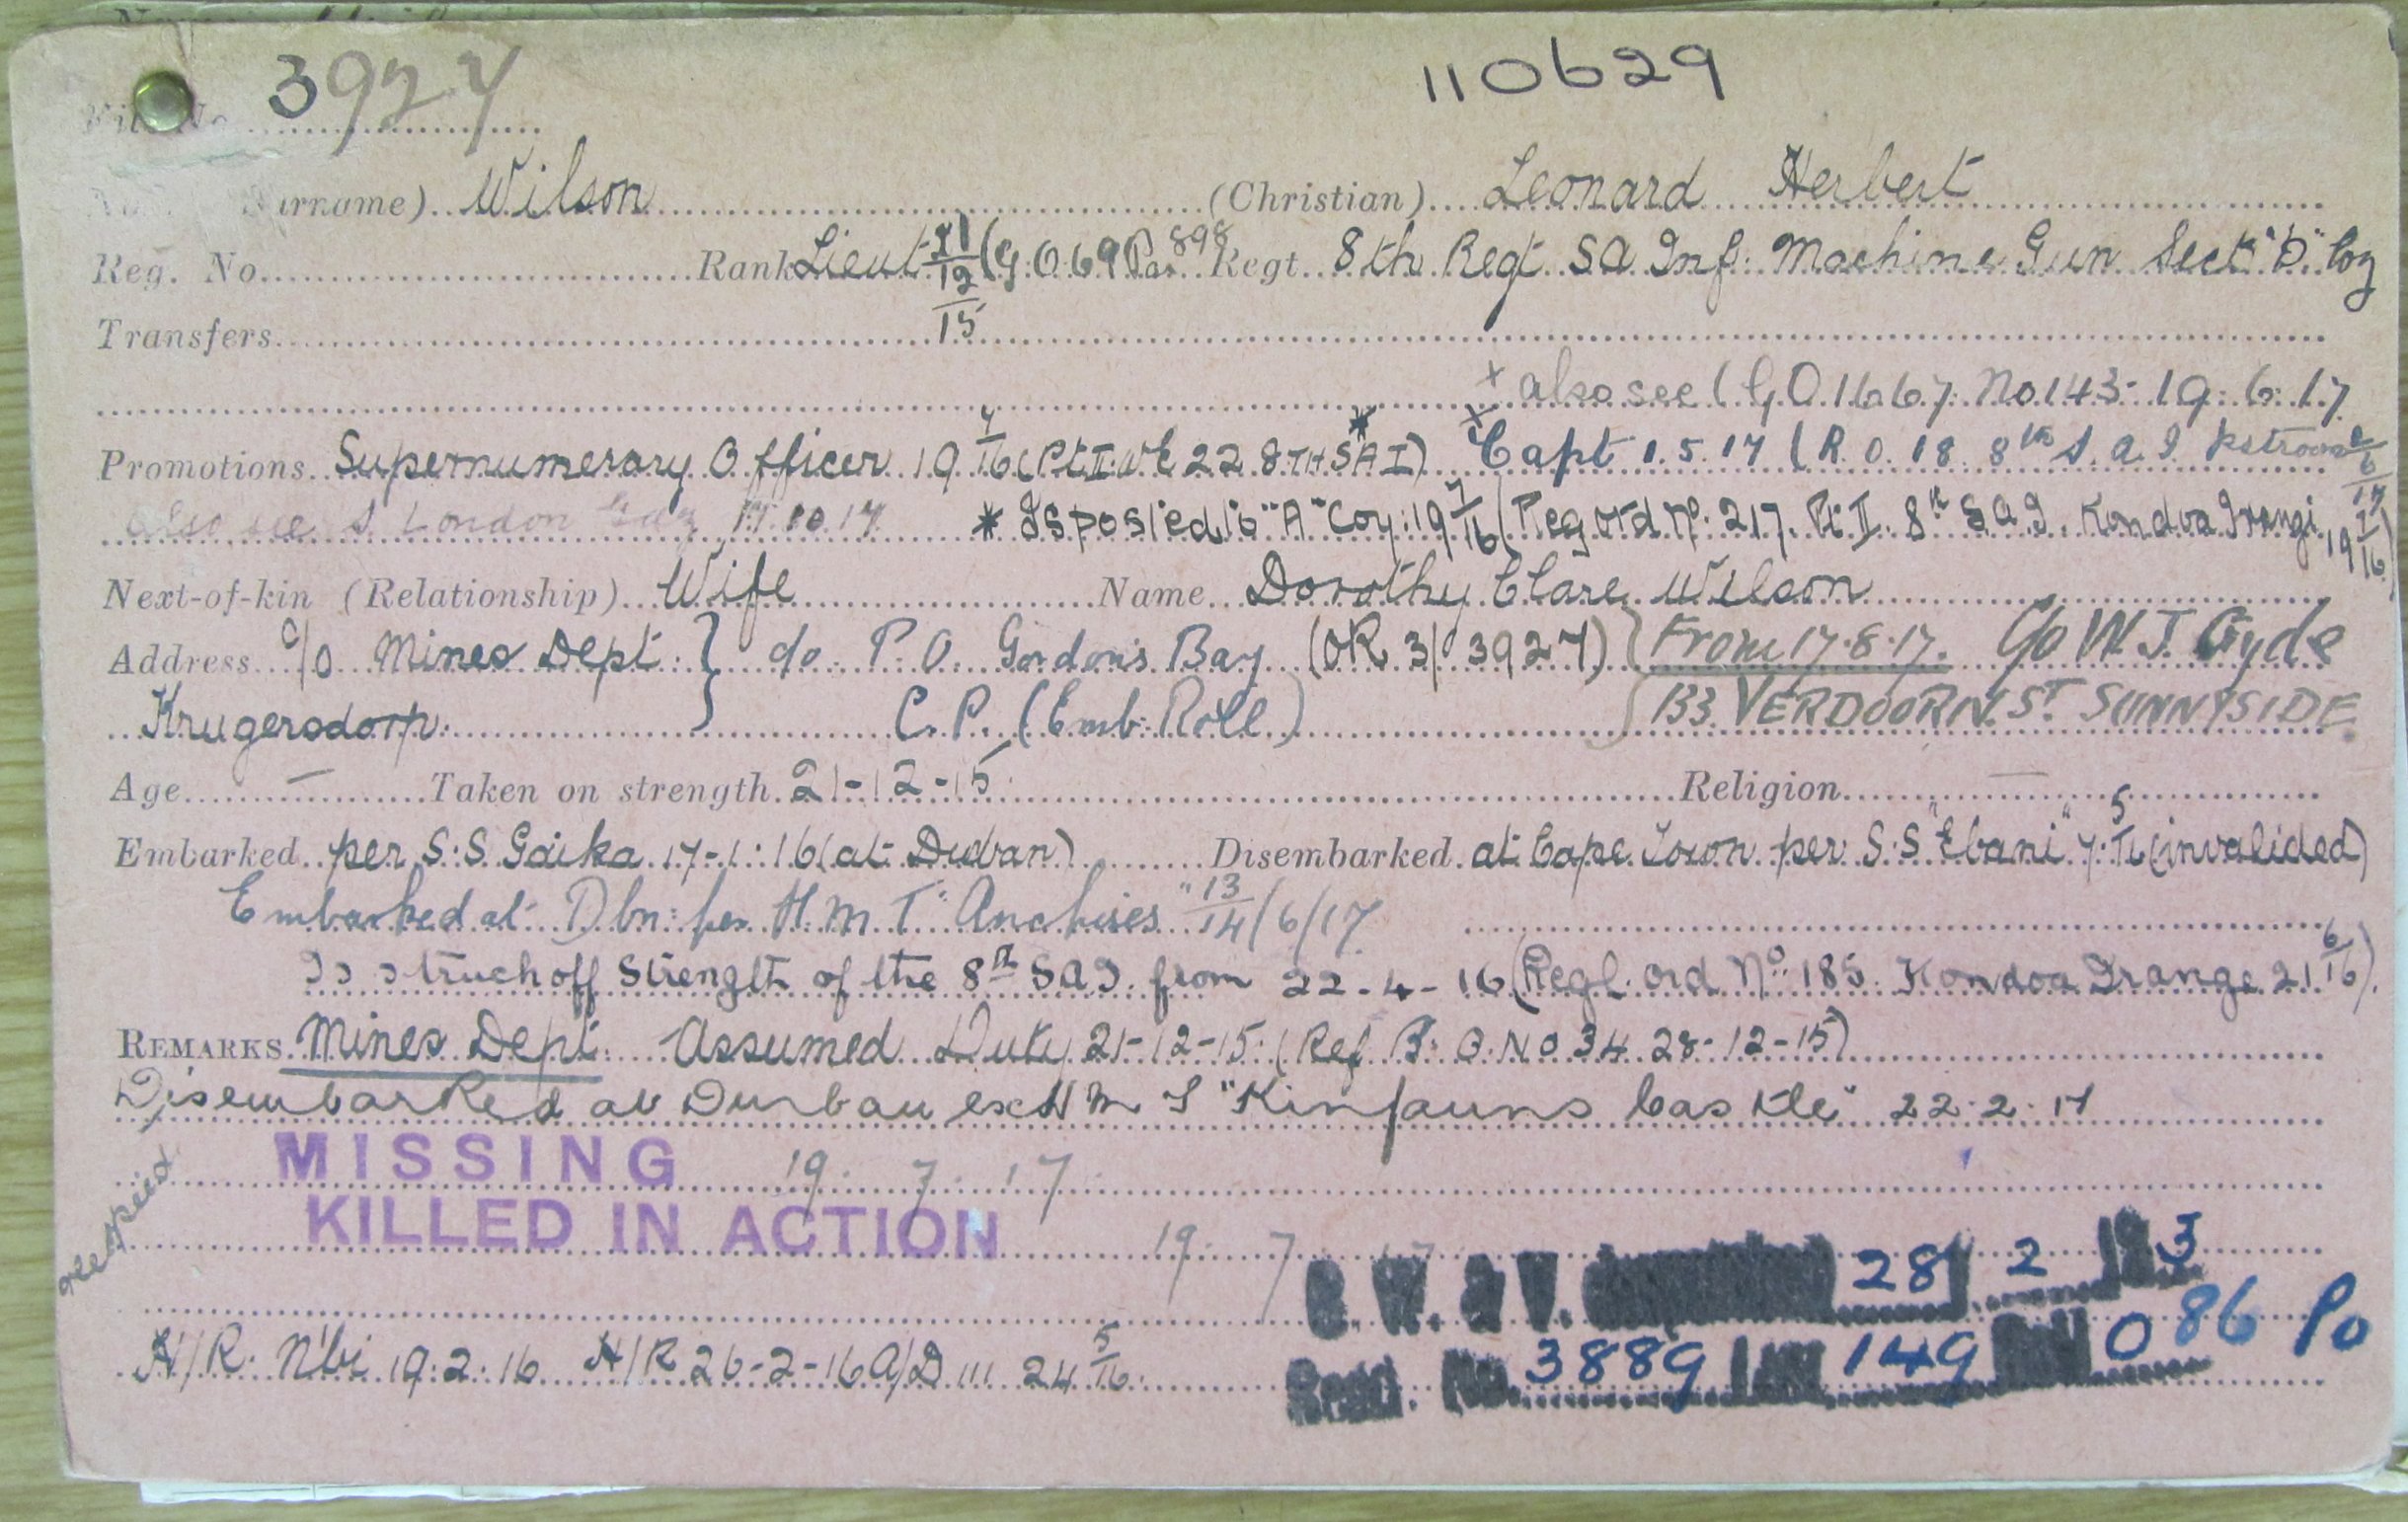 3927 110629
(Surname) Wilson (Christian) Leonard Herbert
Reg. No. Rank Lieut 21/12/15 (G.O 69 Par 898 Regt. 8th Regt SA Inf. Machine Gun Sect "D" Coy
Transfers
x also see (G.O. 1667. No 143 - 19.6.17
Promotions Supernumerary Officer 19 7/16 (Pt II 22 8TH SAI) * x Capt 1.5.17 (R.O. 18 8th S.A.I
also see London Gaz 17.10.17 * Is posted to "A" Coy. 19 7/16 (Reg ord No. 217. Pt II. 8th S.A.I. Kondoa Irangi 19 7/16)
Next-of-kin (Relationship) Wife Name Dorothy Clare Wilson
Address c/o Mines Dept } c/o P.O. Gordons Bay (OR 3/3927) { From 17.8.17. C/o W. J. Gyde
Krugersdorp. C.P. (Emb: Roll) 133. VERDOORN. ST. SUNNYSIDE.
Age — Taken on strength 21-12-15 Religion —
Embarked per S.S Gaika 17-1-16 (at Durban) Disembarked at Cape Town per S.S "Ebani" 7 5/16 (invalided)
Embarked at Dbn: per H.M.T. "Anchises" 13/14/6/17
Is struck off Strength of the 8th SAI. from 22-4-16 (Regl. ord No. 185. Kondoa Irange 21 6/16).
REMARKS. Mines Dept. Assumed Duty 21-12-15. (Ref B.O. No 34 28-12-15)
Disembarked at Durban ex H M T "Kinfauns Castle" 22.2.17
MISSING 19. 7. 17
KILLED IN ACTION 19. 7. 17
B. W. & V. 28 2 23
Regd. No. 3889 149 086 Po
H/R. N'bi 19.2.16 H/R 26-2-16 A/D 111 24 5/16.